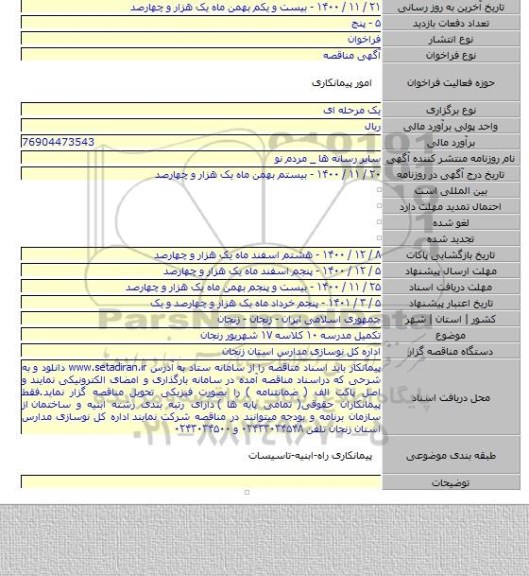 تاریخ آخرین به روز رسانی ۲۱ / ۱۱ / ۱۴۰۰ - بیست و یکم بهمن ماه یک هزار و چهارصد
تعداد دفعات بازدید ۵ - پنج
نوع انتشار فراخوان
نوع فراخوان آگهی مناقصه
حوزه فعالیت فراخوان امور پیمانکاری
نوع برگزاری یک مرحله ای
واحد پولی برآورد مالی ریال
برآورد مالی 76904473543
نام روزنامه منتشر کننده آگهی سایر رسانه ها _ مردم نو
تاریخ درج آگهی در روزنامه ۲۰ / ۱۱ / ۱۴۰۰ - بیستم بهمن ماه یک هزار و چهارصد
بین المللی است
احتمال تمدید مهلت دارد
لغو شده
تجدید شده
تاریخ بازگشایی پاکات ۸ / ۱۲ / ۱۴۰۰ - هشتم اسفند ماه یک هزار و چهارصد
مهلت ارسال پیشنهاد ۵ / ۱۲ / ۱۴۰۰ - پنجم اسفند ماه یک هزار و چهارصد
مهلت دریافت اسناد ۲۵ / ۱۱ / ۱۴۰۰ - بیست و پنجم بهمن ماه یک هزار و چهارصد
تاریخ اعتبار پیشنهاد ۵ / ۳ / ۱۴۰۱ - پنجم خرداد ماه یک هزار و چهارصد و یک
کشور | استان | شهر جمهوری اسلامی ایران - زنجان - زنجان
موضوع تکمیل مدرسه ۱۰ کلاسه ۱۷ شهریور زنجان
دستگاه مناقصه گزار اداره کل نوسازی مدارس استان زنجان
محل دریافت اسناد پیمانکار باید اسناد مناقصه را از سامانه ستاد به آدرس www.setadiran.ir دانلود و به
شرحی که دراسناد مناقصه آمده در سامانه بارگذاری و امضای الکترونیکی نمایند و
اصل پاکت الف ( ضمانتنامه ) را بصورت فیزیکی تحویل مناقصه گزار نماید.فقط
پیمانکاران حقوقی( تمامی پایه ها ) دارای رتبه بندی رسته ابنیه و ساختمان از
سازمان برنامه و بودجه میتوانند در مناقصه شرکت نمایند اداره کل نوسازی مدارس
استان زنجان تلفن ۰۲۴۳۳۰۳۴۵۴۸ و ۰۲۴۳۳۰۳۴۵۰۰
طبقه بندی موضوعی پیمانکاری راه-ابنیه-تاسیسات
توضیحات
ParsNamadData